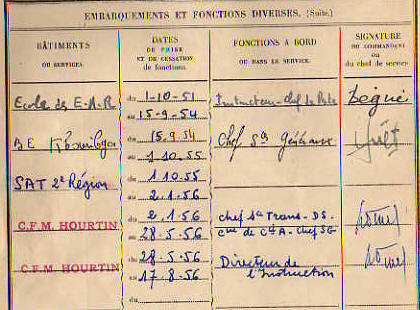 EMBARQUEMENTS ET FONCTIONS DIVERSES. (Suite.)
BÂTIMENTS
OU SERVICES.
DATES
DE PRISE
ET DE CESSATION
de fonctions.
FONCTIONS A BORD
OU DANS LE SERVICE.
SIGNATURE
DU COMMANDANT
ou
du chef de service
Ecole des E.A.R
du 1-10-51
au 15-9-54
Instructeur - Chef de
Bégué
BE
du 15.9.54
au 1 10.55
Chef Sce Généraux
SAT 2e Région
du 1 10.55
au 2.1.56
C.F.M. HOURTIN
du 2.1.56
au 28-5-56
chef Sce Trans - DS.
Cne de CieA - Chef SG
C.F.M. HOURTIN
du 28-5-56
au 17-8-56
Directeur de
l'Instruction
du